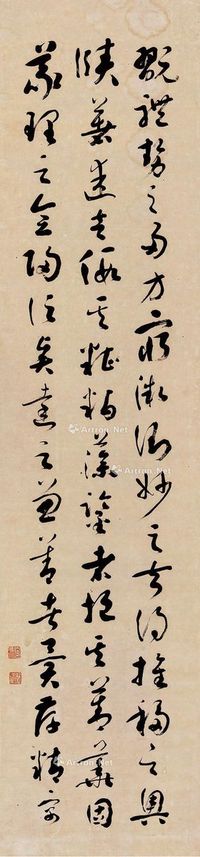 翫體勢之多方窮微測妙之夫得推移之奧
賾著述者假其糟粕藻鑒者挹其菁華固
義理之會歸信賢達之兼善者矣存精寓
Artron.Net
Artron.Net
Artron.Net